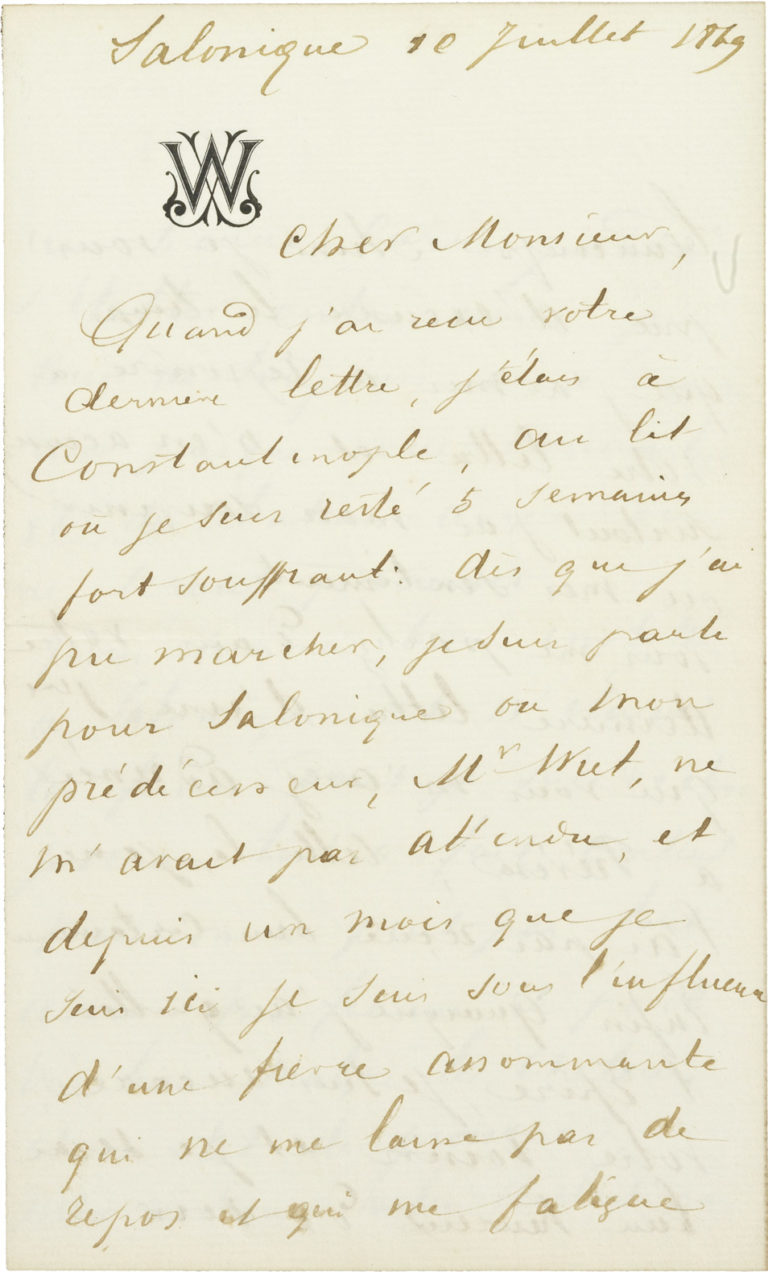 Salonique 10 Juillet 1869
W
Cher Monsieur,
Quand j'ai reçu votre
dernière lettre, j'étais à
Constantinople, au lit
où je suis resté 5 semaines
fort souffrant. dès que j'ai
pu marcher, je suis parti
pour Salonique où mon
prédécesseur, Mr Wiet, ne
m'avait pas attendu, et
depuis un mois que je
suis ici je suis sous l'influence
d'une fièvre assommante
qui ne me laisse pas de
repos et qui me fatigue